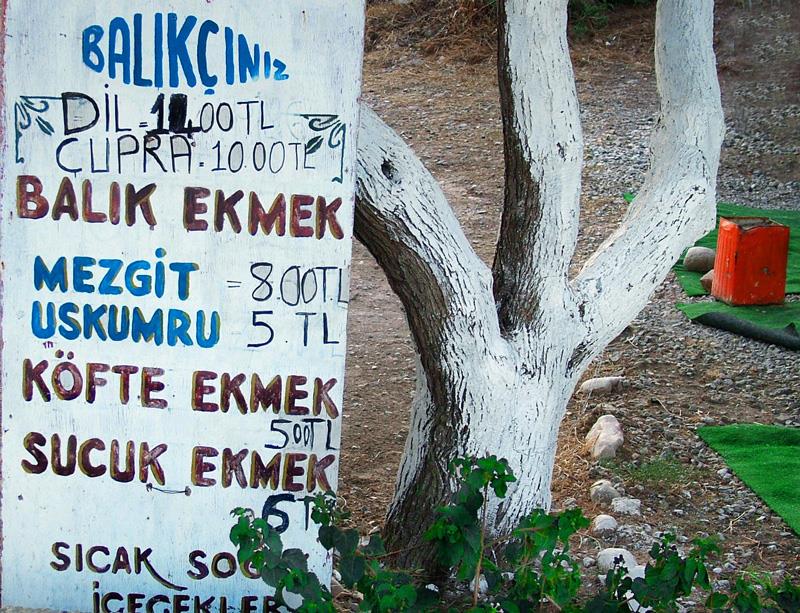 BALIKÇINIZ
DİL = 14.00TL
ÇUPRA: 10.00TL
BALIK EKMEK
MEZGİT = 8.00TL
USKUMRU 5 TL
KÖFTE EKMEK
500TL
SUCUK EKMEK
6T
SICAK
İÇECEKLER